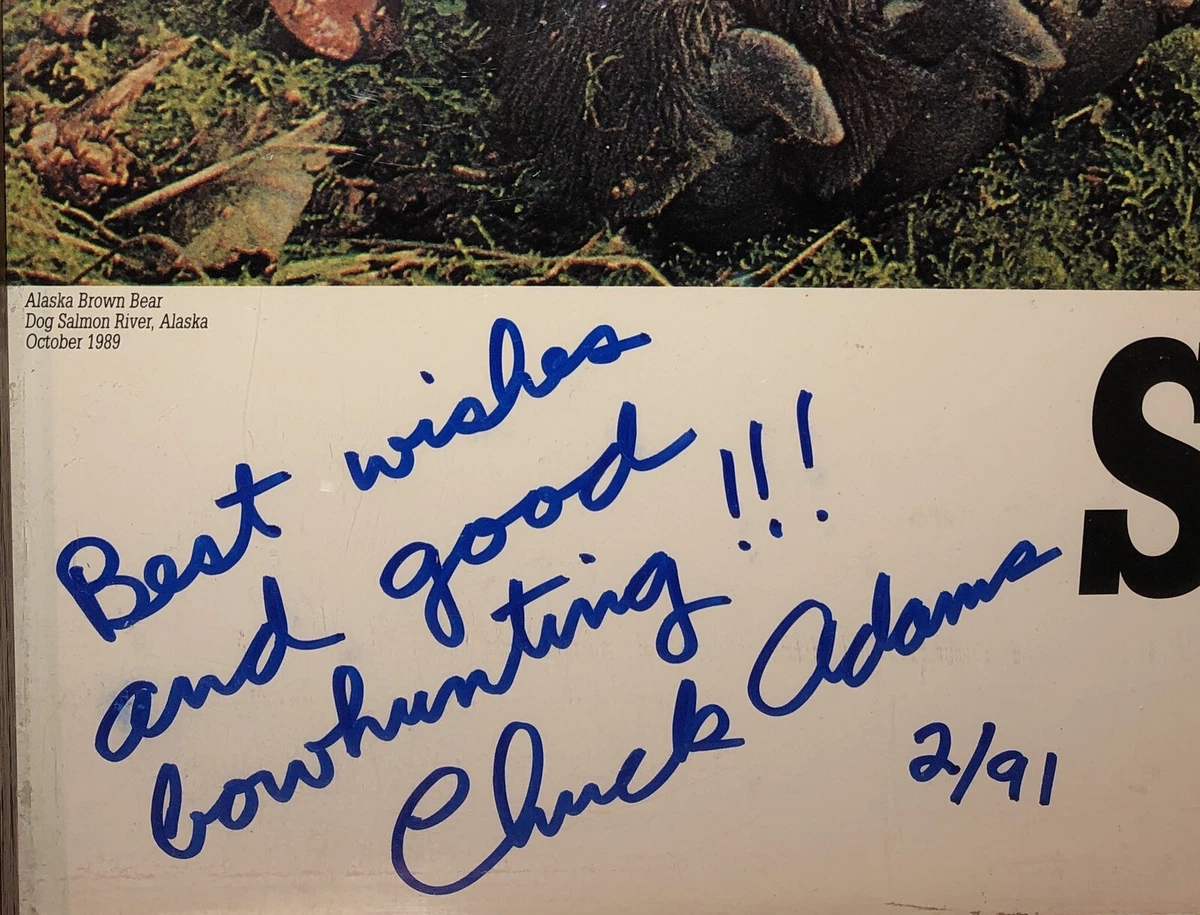 Alaska Brown Bear
Dog Salmon River, Alaska
October 1989
Best wishes
and good
bowhunting !!!
Chuck Adams
2/91
S